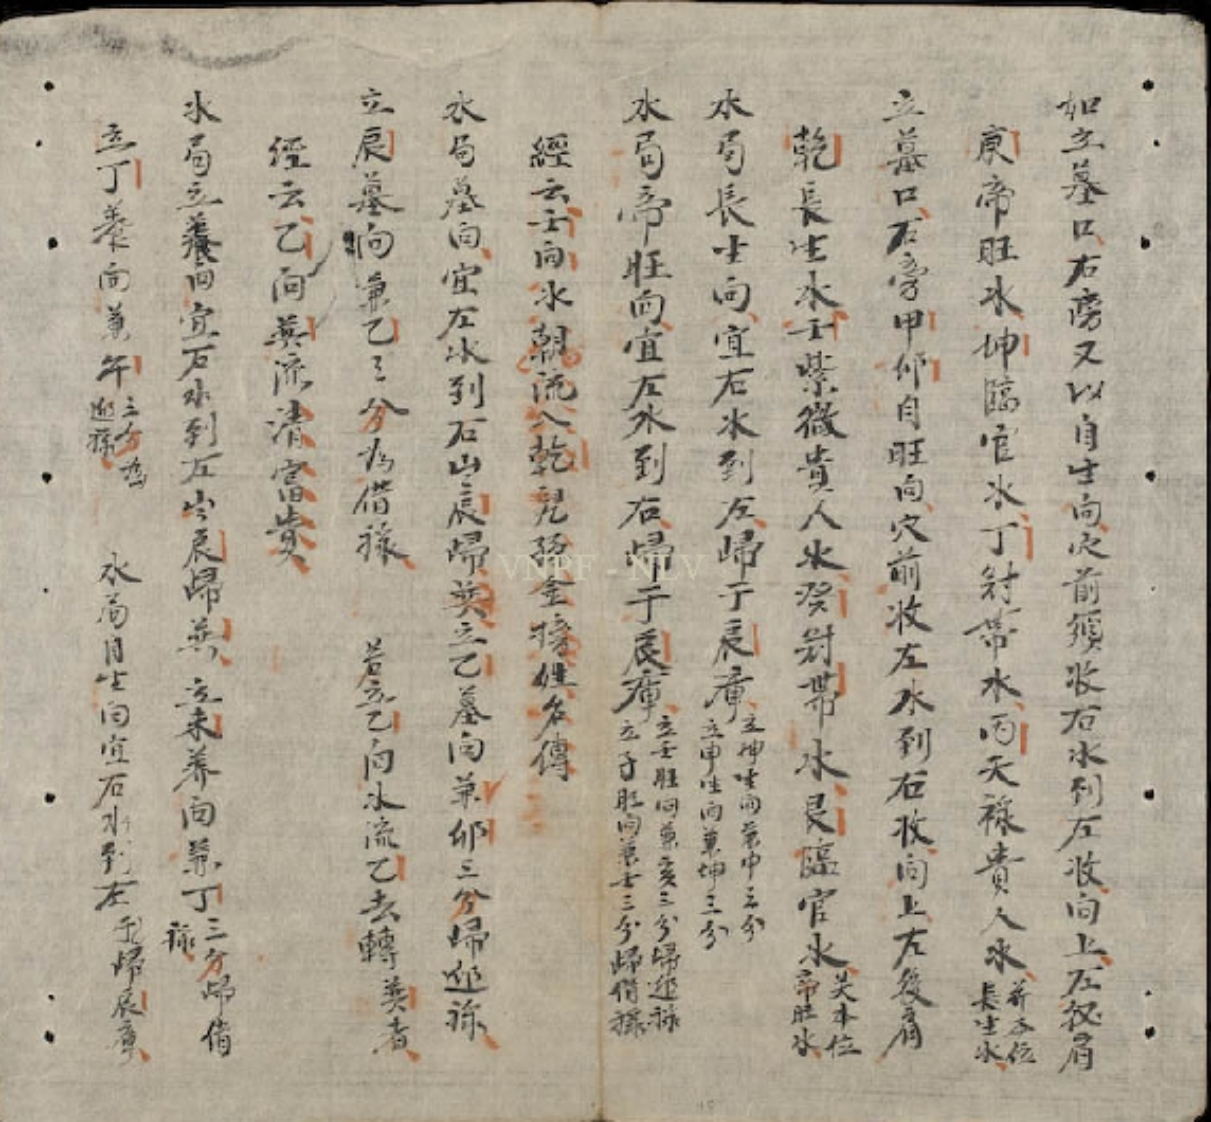 如立墓口右旁又以自生向穴前須收右水到左收向上左後肩
庚帝旺水坤臨官水丁冠帶水丙天祿貴人水并本位長生水
立墓口右旁甲卯自旺向穴前收左水到右收向上左後肩
乾長生水壬紫微貴人水癸冠帶水艮臨官水 本位帝旺水
水局長生向宜右水到左歸于辰庫立坤生向兼申三分立申生向兼坤三分
水局帝旺向宜左水到右歸于辰庫立壬旺向兼亥三分歸迎祿立子旺向兼壬三分歸借祿
經云壬向水朝流入乾兒孫金榜姓名傳
水局墓向宜左水到右山辰歸巽立乙墓向兼卯三分歸迎祿
立辰墓向兼乙三分為借祿 若立乙向水流乙去轉巽者
經云乙向巽流清富貴
水局立養向宜右水到左 辰歸巽 立未養向兼丁三分歸借祿
立丁養向兼午三分為迎祿 水局自生向宜右水到左 歸辰庫
VNPF - NLV